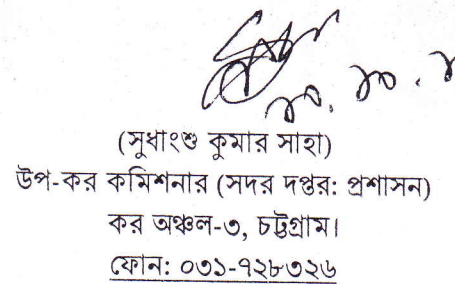 (সুধাংশু কুমার সাহা)
উপ-কর কমিশনার (সদর দপ্তর: প্রশাসন)
কর অঞ্চল-৩, চট্টগ্রাম।
ফোন: ০৩১-৭২৮৩২৬